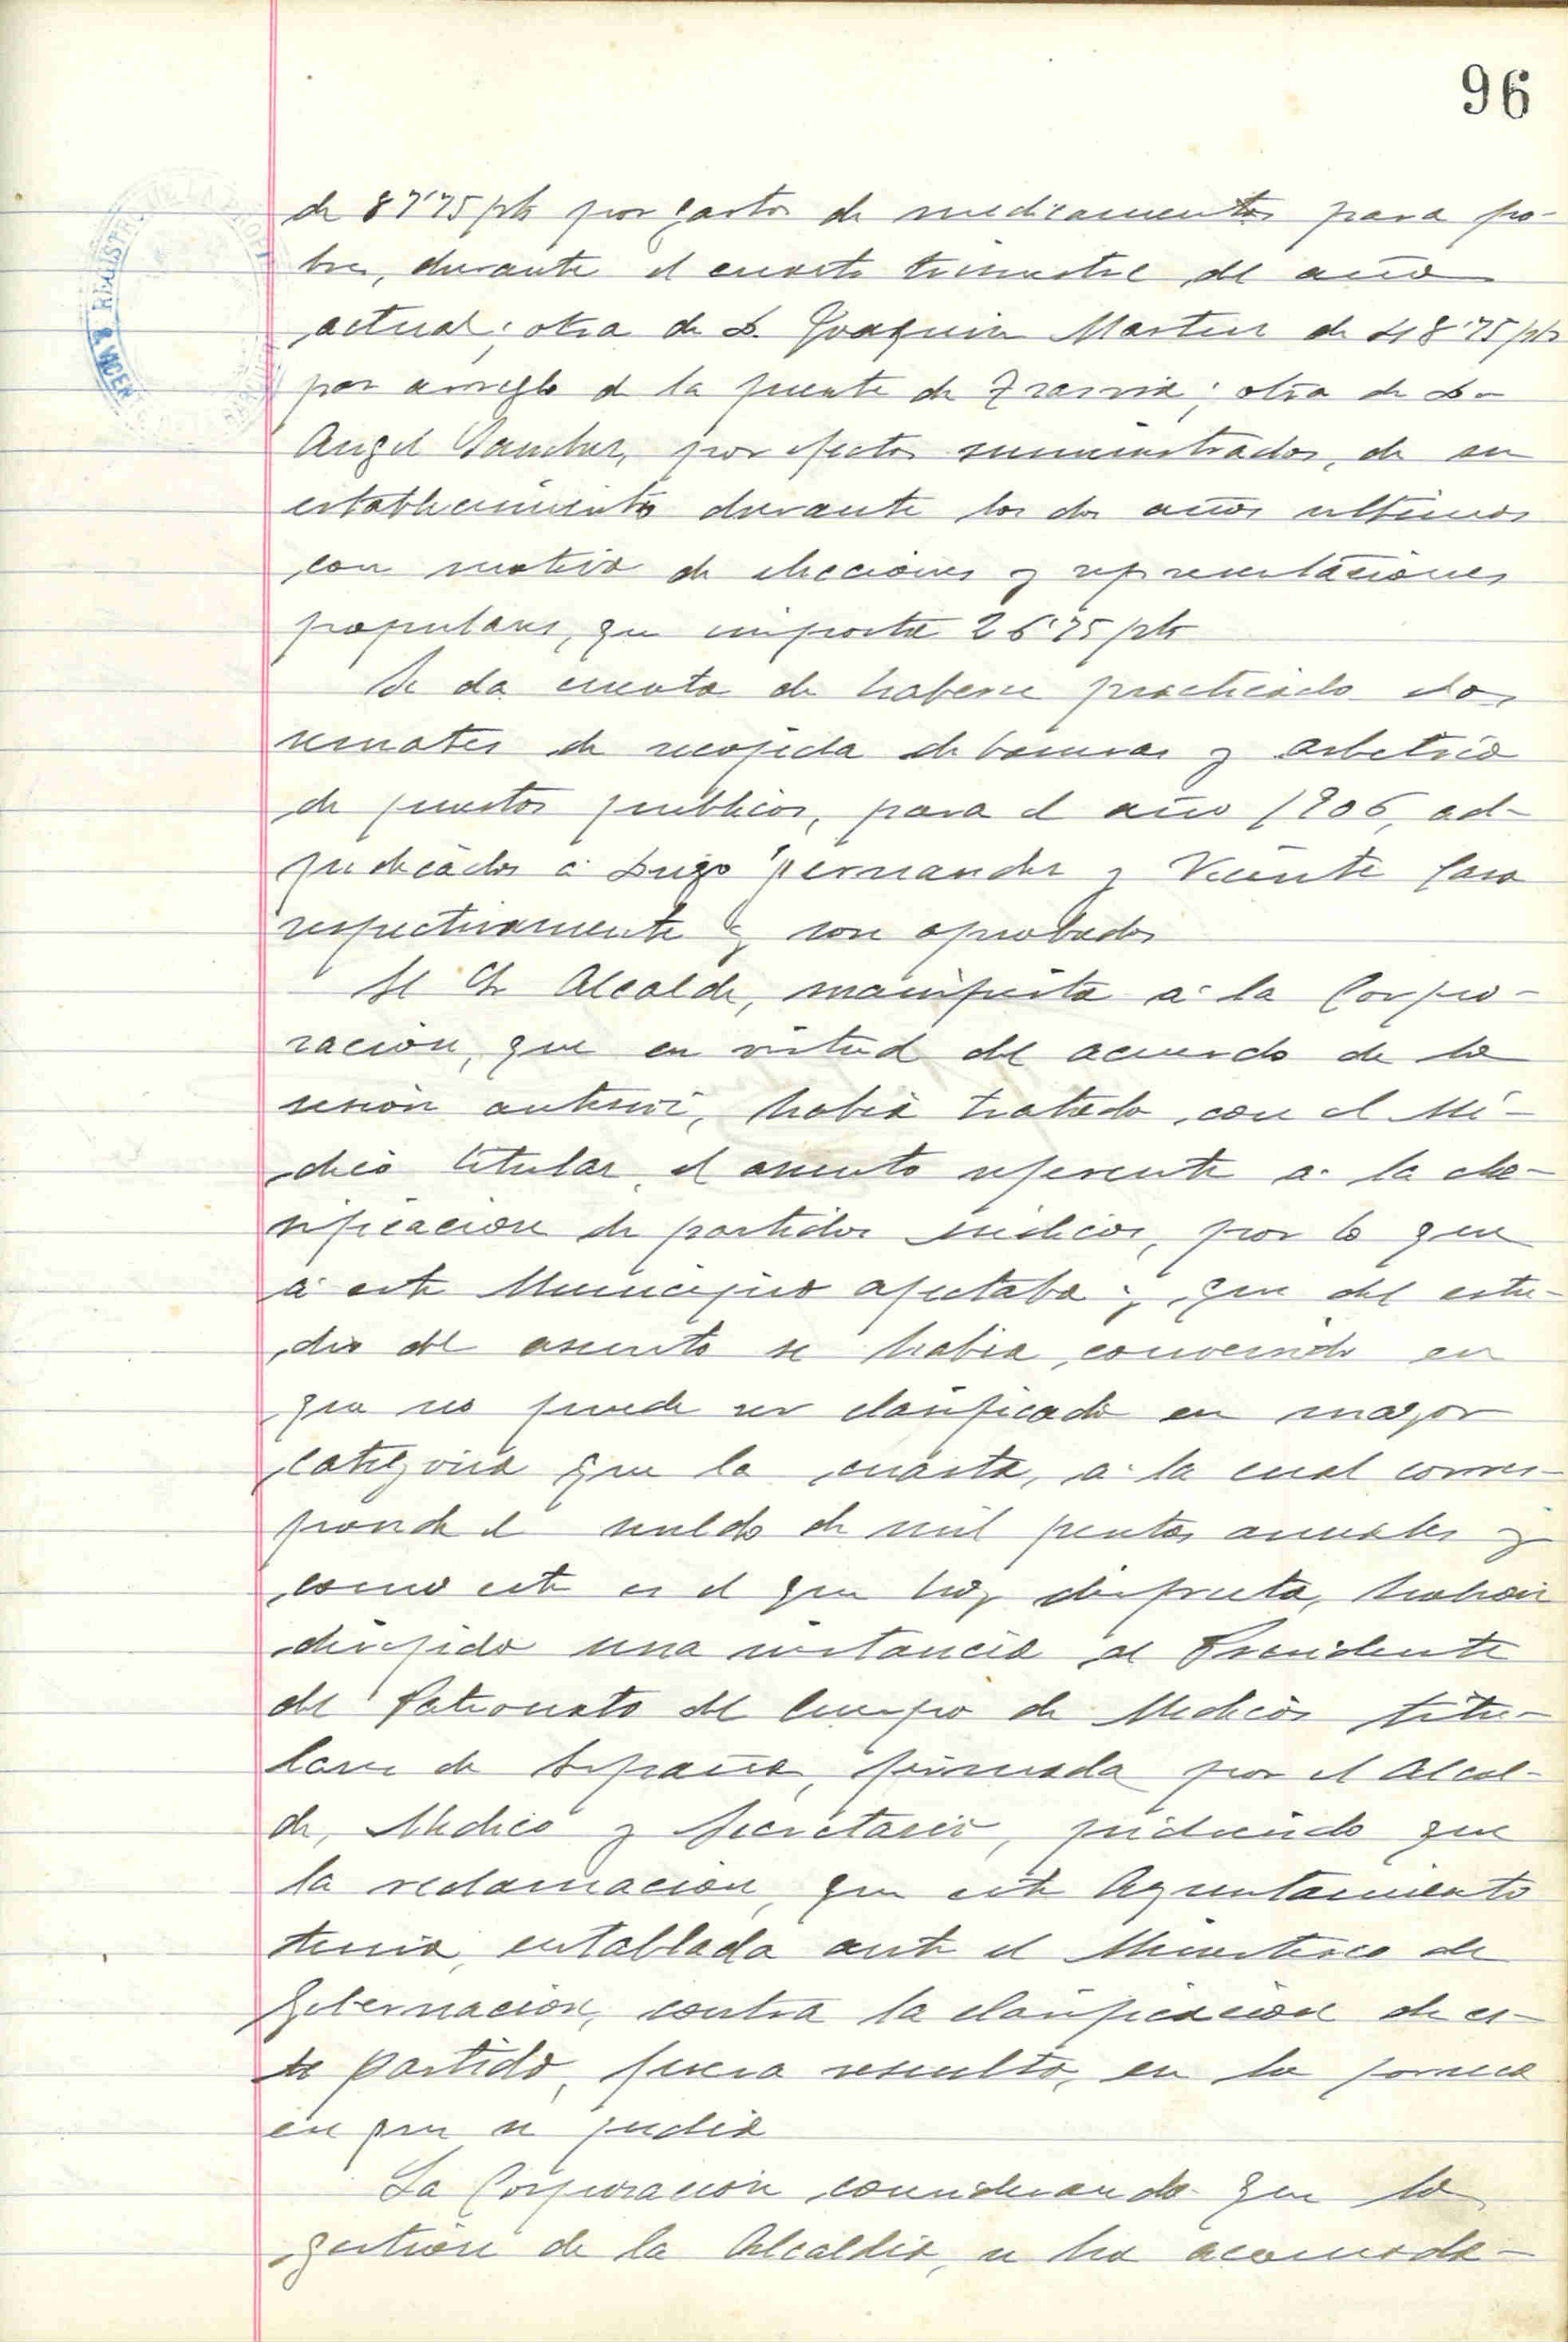 96
de 87'75 pts por gastos de medicamentos para po-
bres, durante el cuarto trimestre del año
actual; otra de D. Joaquin Martin de 48'75 pts
por arreglo de la fuente de; otra de Dn
Angel Sanchez, por efectos suministrados, de su
establecimiento durante los dos años ultimos
con motivo de elecciones y representaciones
populares, que importa 26'75 pts
Se da cuenta de haberse practicado los
remates de recojida de basuras y arbitrio
de puestos publicos, para el año 1906, ad-
judicados á Fernandez y Vicente
respectivamente y son aprobados
El Sr Alcalde, manifiesta á la Corpo-
ración, que en virtud del acuerdo de la
sesión anterior, había tratado con el Mé-
dico titular, el asunto referente á la cla-
sificacion de partidos médicos, por lo que
á este Municipio afectaba y que del estu-
dio del asunto se habia convenido en
que no puede ser clasificado en mayor
categoria que la cuarta, á la cual corres-
ponde el sueldo de mil pesetas anuales y
como este es el que hoy disfruta, habian
dirijido una instancia al Presidente
del Patronato del Cuerpo de Medicos titu-
lares de España, firmada por el Alcal-
de, Medico y Secretario, pidiendo que
la reclamacion, que este Ayuntamiento
tenia, entablada ante el Ministerio de
Gobernacion, contra la clasificacion de es-
te partido, fuera resuelto, en la forma
en que se pedia
La Corporacion considerando que la
gestion de la Alcaldia, se ha acomoda-